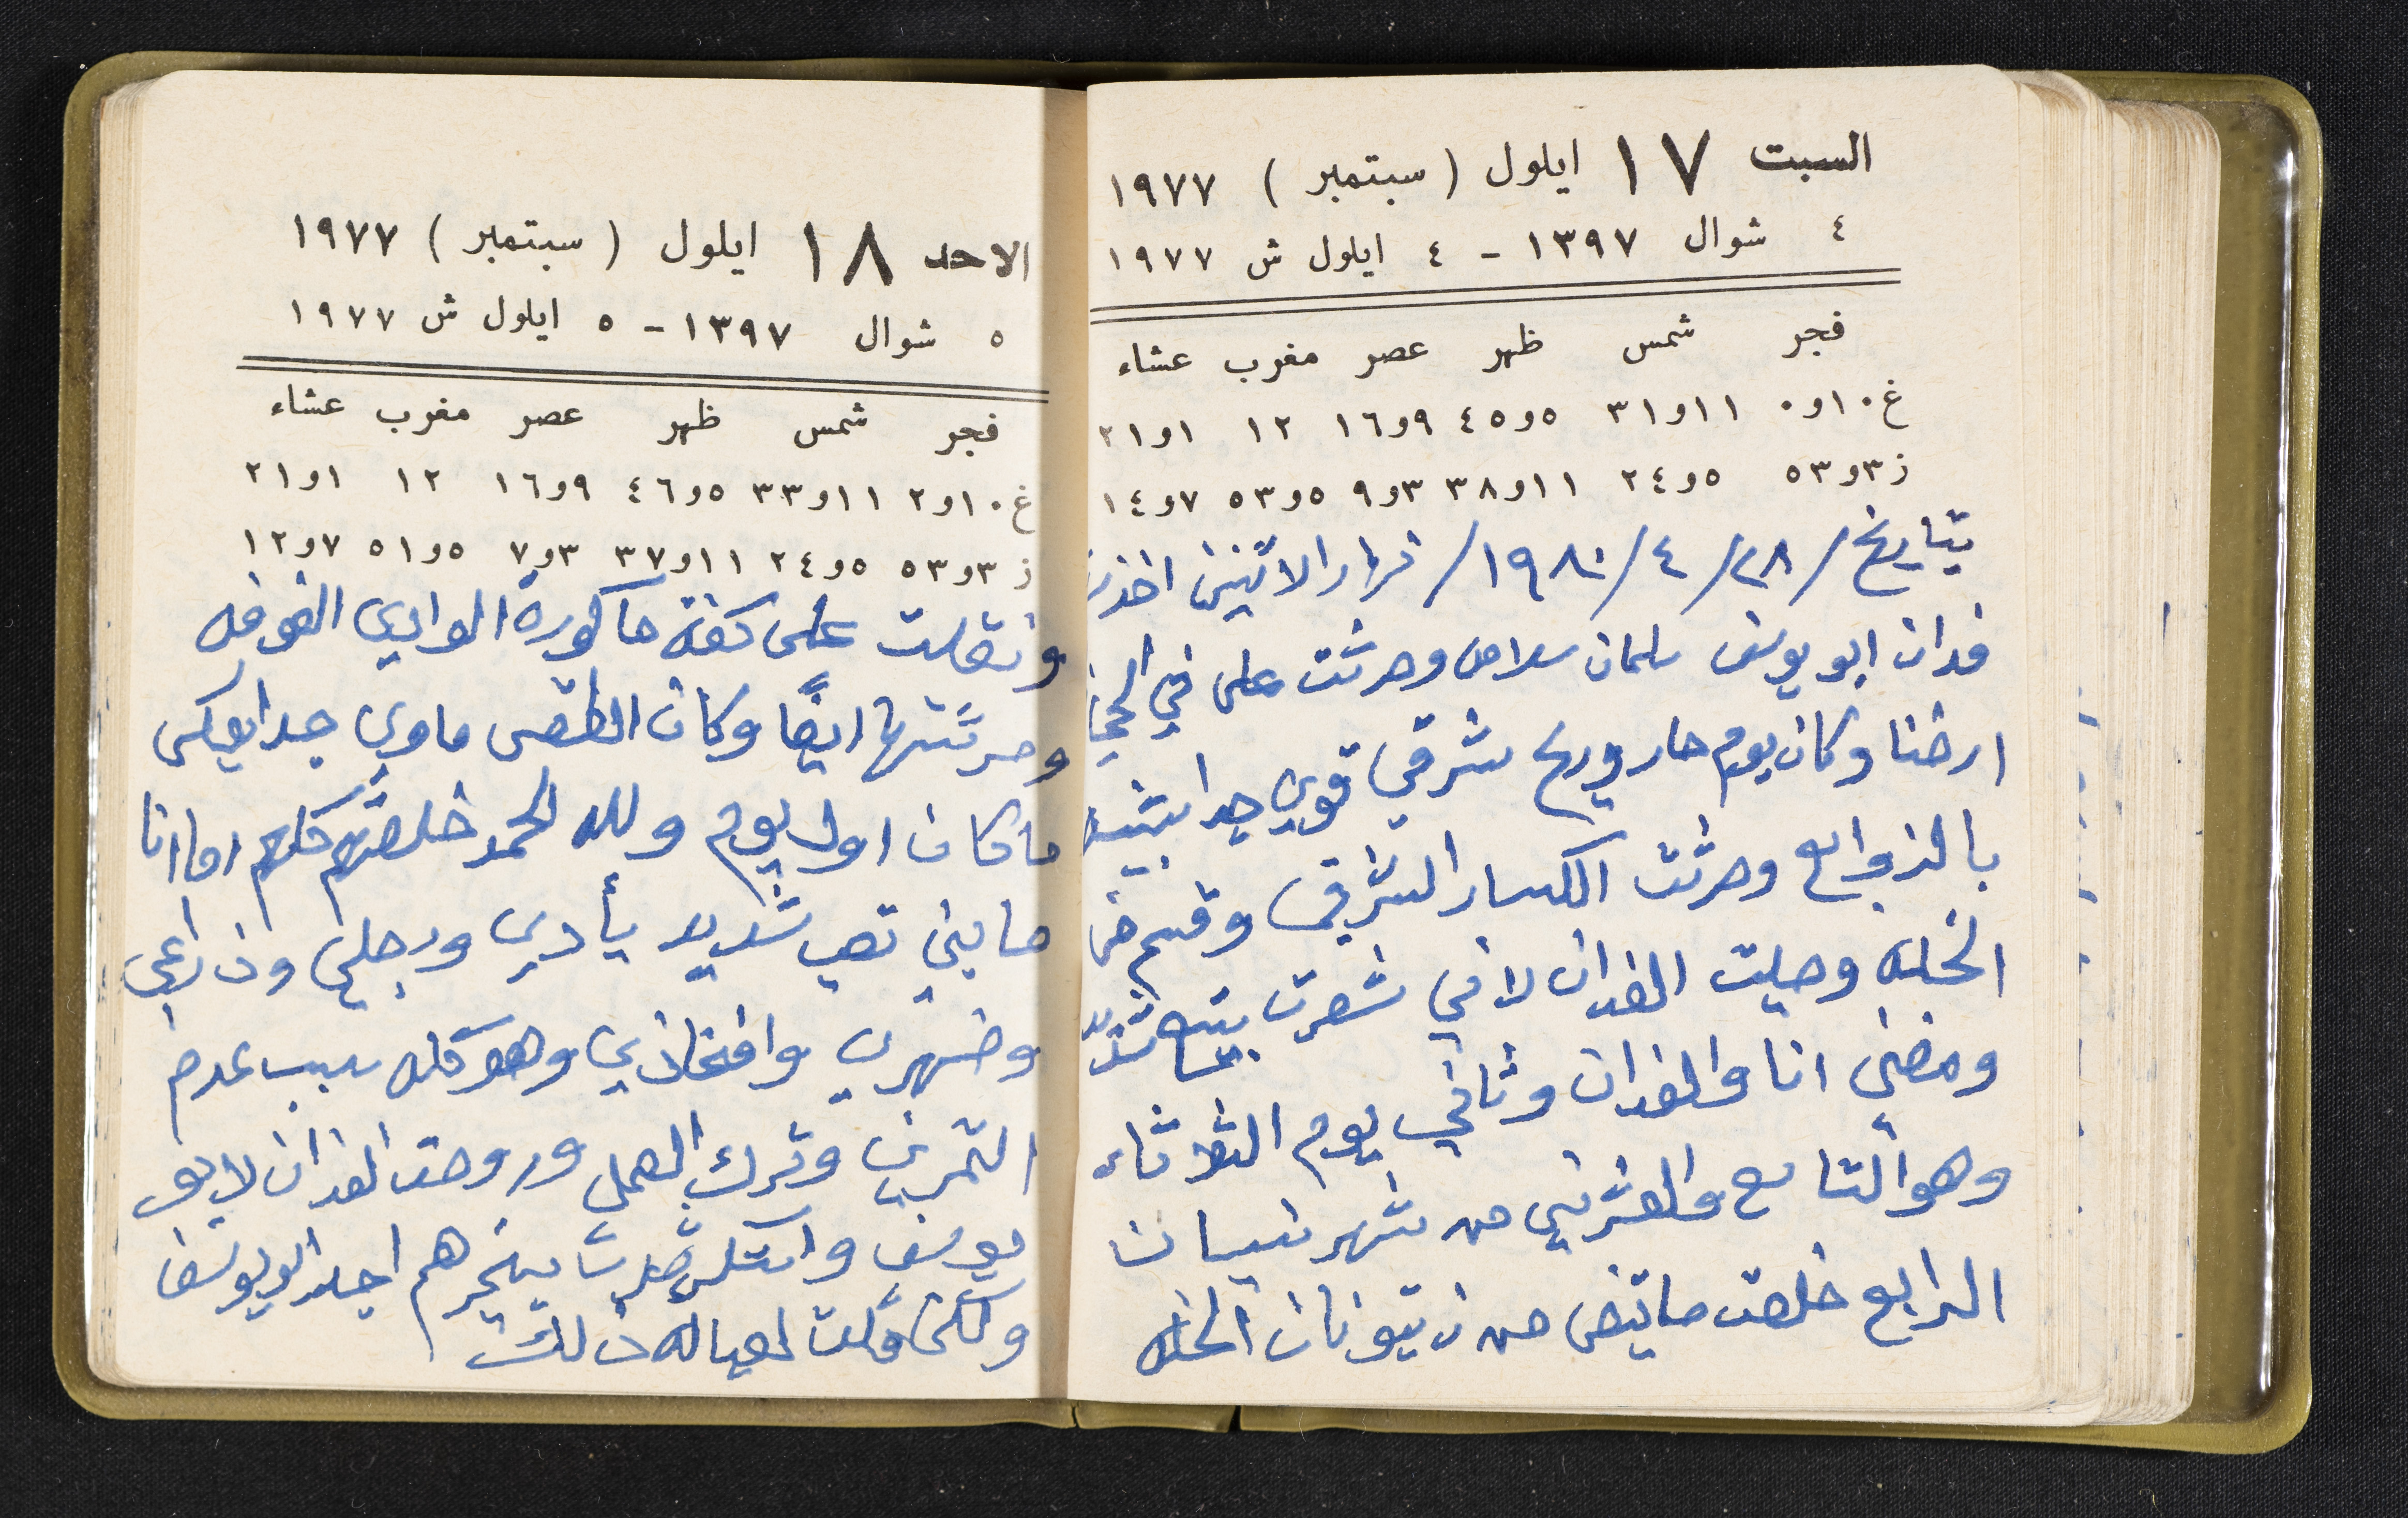 السبت ١٧ ايلول ( سبتمبر ) ١٩٧٧
٤ شوال ١٣٩٧ - ٤ ايلول ش ١٩٧٧
فجر شمس ظهر عصر مغرب عشاء
غ ١٠و٠ ١١و٣١ ٥و٤٥ ٩و١٦ ١٢ ١و٢١
ز ٣و٥٣ ٥و٢٤ ١١و٣٨ ٣و٩ ٥و٥٣ ٧و١٤
بتاريخ /٢٨/ ٤/ ١٩٨٠/ نهار الاثنين اخذت
فدان ابو يوسف سلمان سلامه وحرثت على في
ارضنا وكان يوم حار وريح شرقي قوي جدا
بالزوابع وحرثت الكسار الشرقي وقسم من
الخله وحليت الفدان لاني شعرت بتعب شديد
ومضني انا والفدان وثاني يوم الثلاثاء
وهو التاسع والعشرين من شهر نيسان
الرابع خلصت ما تبقى من زيتونات الخله
الاحد ١٨ ايلول ( سبتمبر ) ١٩٧٧
٥ شوال ١٣٩٧ - ٥ ايلول ش ١٩٧٧
فجر شمس ظهر عصر مغرب عشاء
غ ١٠و٢ ١١و٣٣ ٥و٤٦ ٩و١٦ ١٢ ١و٢١
ز ٣و٥٣ ٥و٢٤ ١١و٣٧ ٣و٧ ٥و٥١ ٧و١٢
ونقلت على كفة حاكورة الوادي الفوقه
وحرثتها ايضًا وكان الطقس ماوي جدا بعكس
ما كان اول يوم ولله الحمد خلصتهم كلهم اما انا
صابني تعب شديد بأدي ورجلي وذراعي
وضهري وافخاذي وهو كله سبب عدم
التمرين وترك العمل وروحت الفدان لابو
يوسف اجلد ابو يوسف
ولكن قلت لعياله ذلك